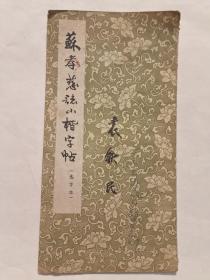 蘇孝慈誌小楷字帖
袁 民